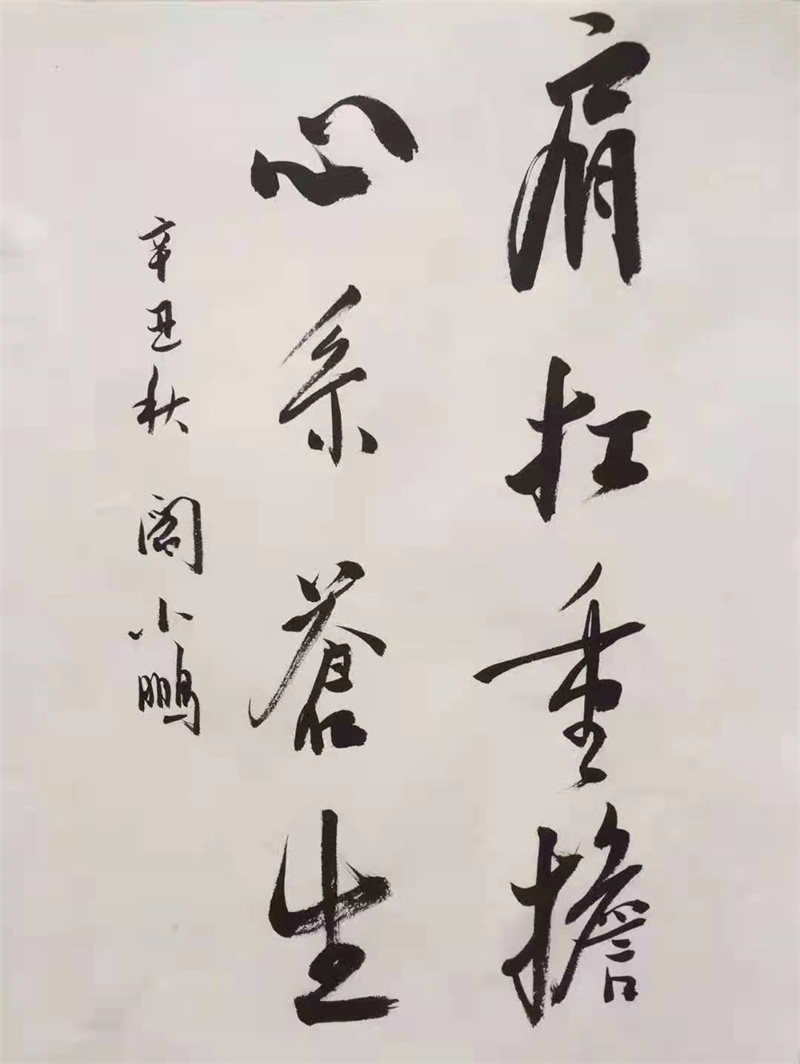 肩扛重擔
心系蒼生
辛丑秋 阎小鵬